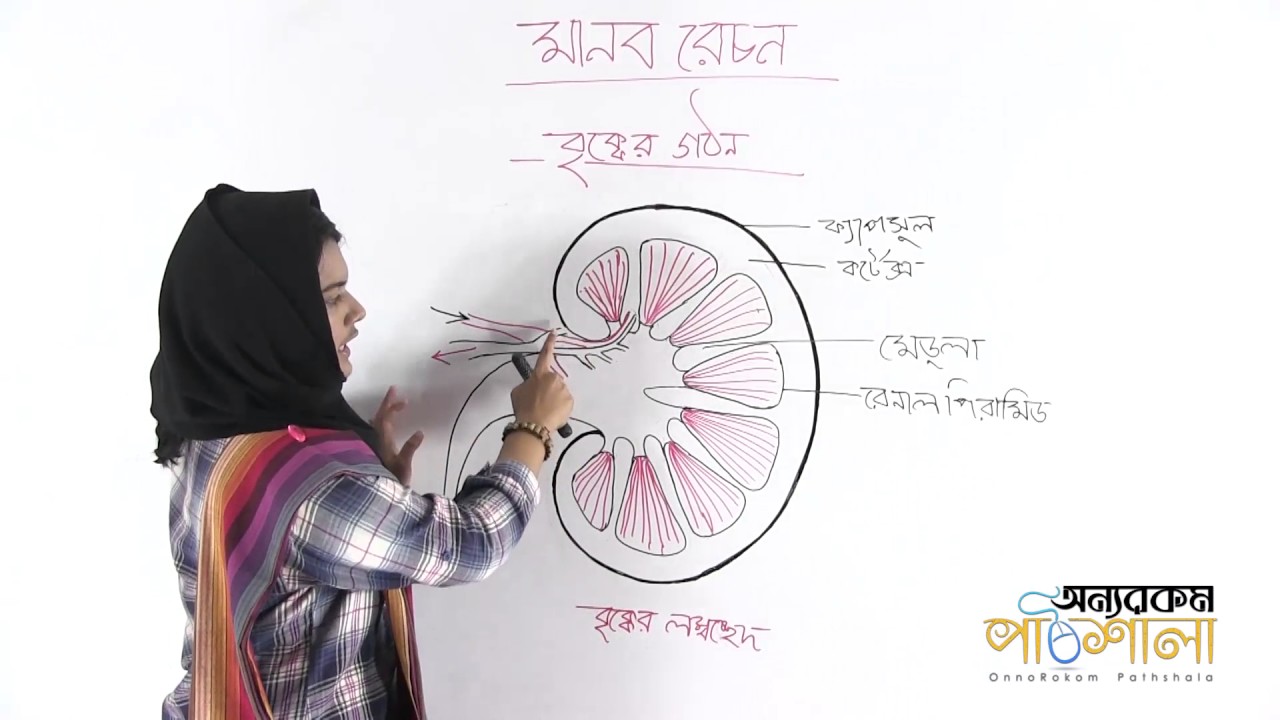 মানব রেচন
– বৃক্কের গঠন
ক্যাপসুল
কর্টেক্স
মেডুলা
রেনাল পিরামিড
বৃক্কের লম্বচ্ছেদ
অন্যরকম
পাঠশালা
OnnoRokom Pathshala